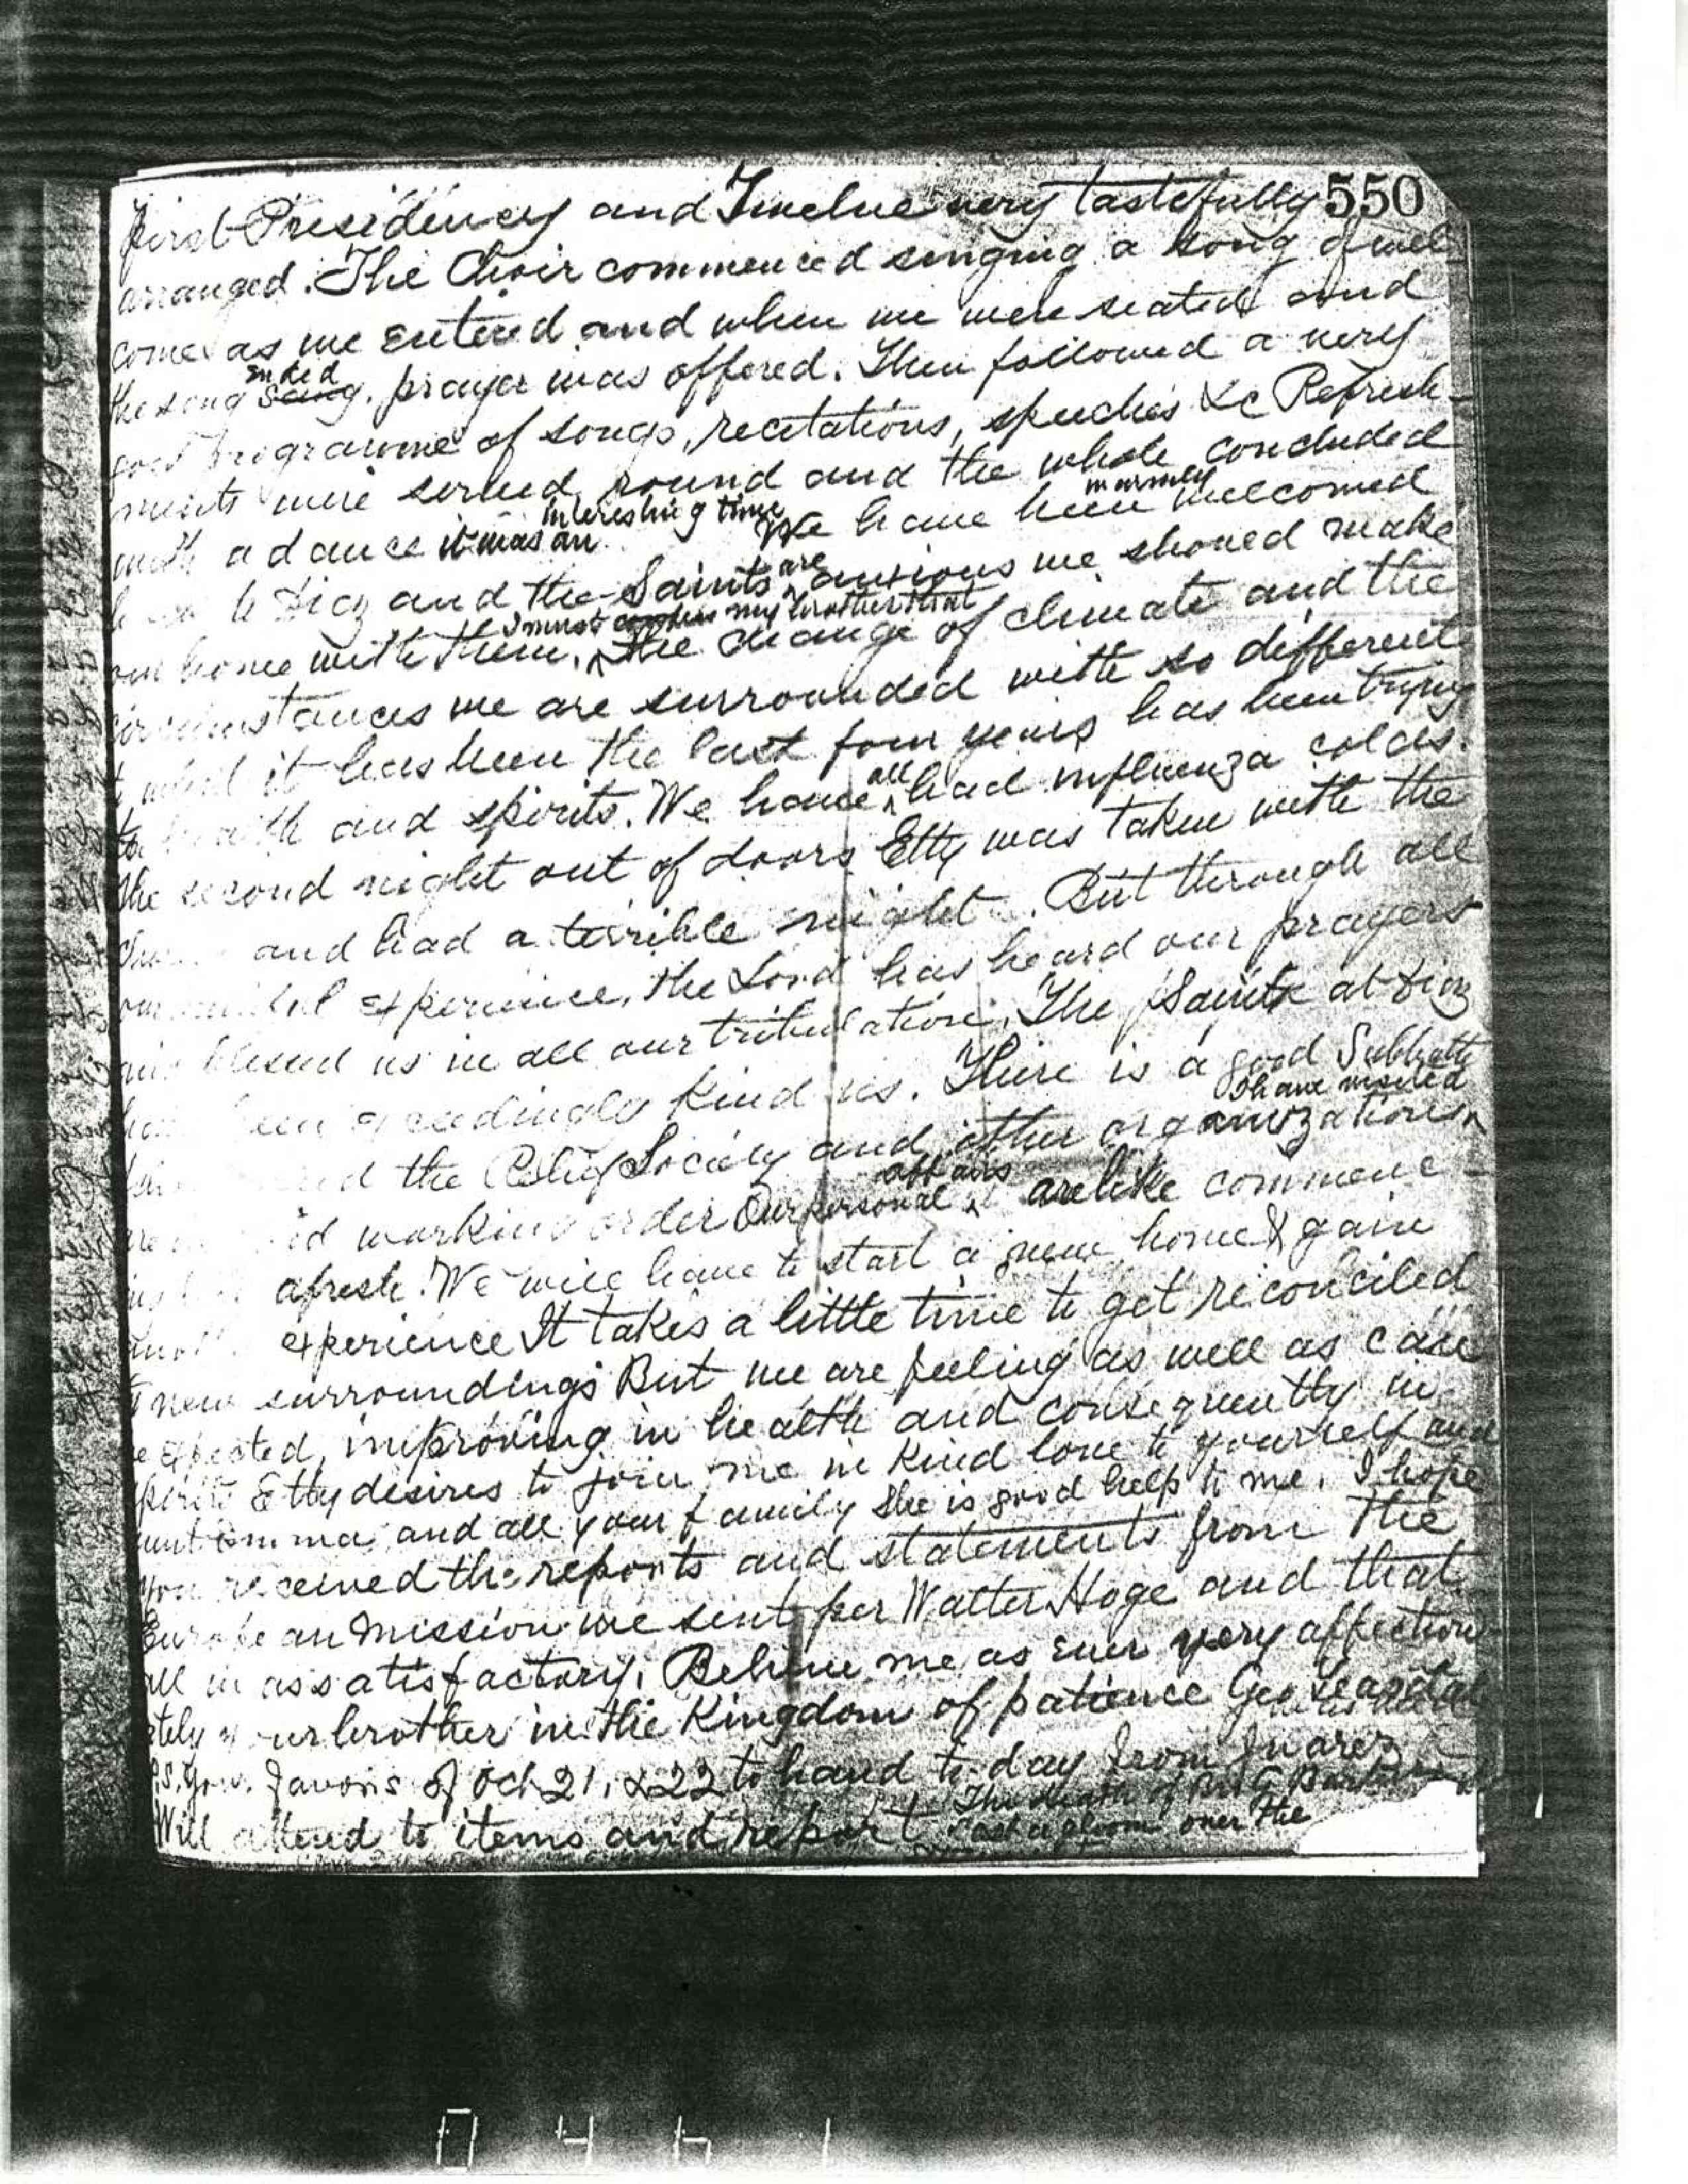 550
First Presidency and Twelve very tastefully
arranged. The Choir commenced singing a song of wel
come as we entered and when we were seated and
ended
the song Sang, prayer was offered. Then followed a very
good programme of songs, recitations, speeches &c Refresh-
ments were served round and the whole concluded
interesting time warmly
with a dance it was an We have been welcomed
to Diaz and the Saints are anxious we shoued make
I must confess my brother that
our home with them, the change of climate and the
circumstances we are surrounded with so different
to what it has been the last four years has been trying
to health and spirits. We have all had influenza colds.
The second night out of doors Etty was taken with the
and had a terrible night. But through all
our experience, the Lord has heard our prayers
and blessed us in all our tribulation. The Saints at Diaz
have been exceedingly kind us. There is a good Sabbath
I have visited
and the Relief Society and other organizations
affairs
working order Our personal are like commenc-
afresh. We will have to start a new home & gain
experience It takes a little time to get reconciled
to new surroundings But we are feeling as well as can
be expected, improving in health and consequently in
spirits Etty desires to join me in kind love to yourself and
aunt Emma, and all your family She is good help to me. I hope
you received the reports and statements from the
European Mission we sent per Walter Hoge and that
all was satisfactory. Believe me as ever very affection
ately your brother in the Kingdom of patience Geo Teasdale
P.S. Your favors of Oct 21, & 22 to hand to day from Juarez
The death of Bro G
Will attend to items and report cast a gloom over the
0 4 4 1